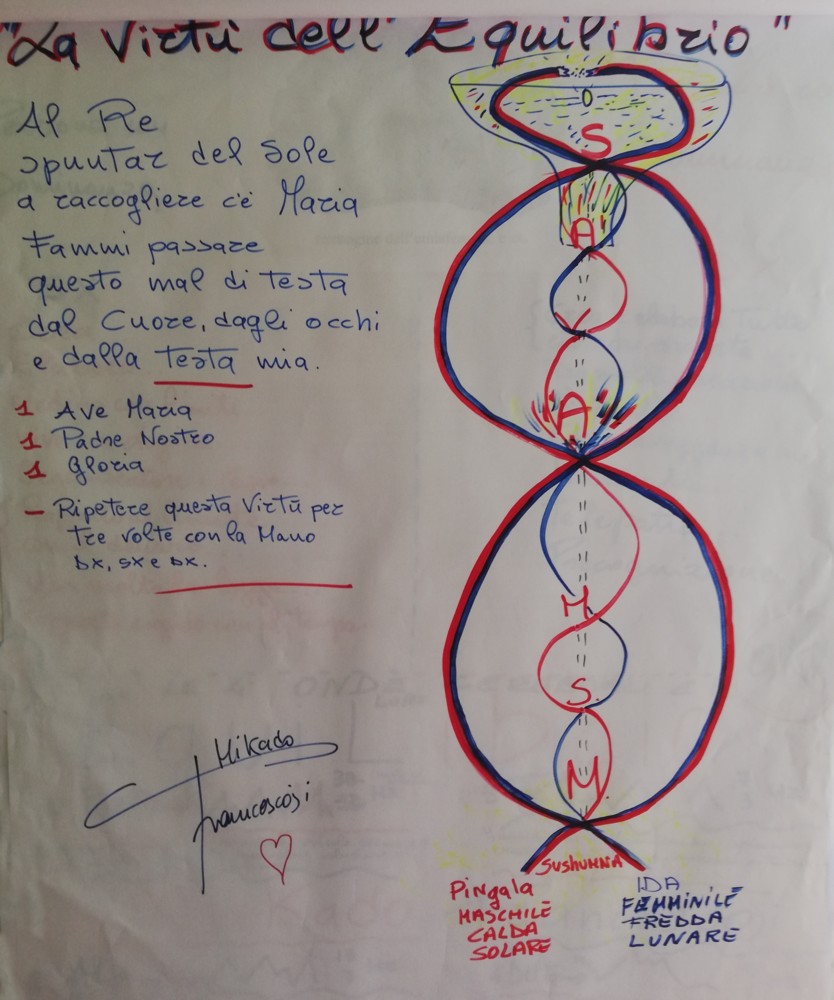 "La Virtù dell'Equilibrio"
Al Re
spuntar del Sole
a raccogliere c'è Maria
Fammi passare
questo mal di testa
dal Cuore, dagli occhi
e dalla testa mia.
1 Ave Maria
1 Padre Nostro
1 Gloria
– Ripetere questa Virtù per
tre volte con la Mano
DX, SX e DX.
Mikado
Francescosi
O
S
A
V
A
M
S
M
SUSHUMNA
Pingala
MASCHILE
CALDA
SOLARE
IDA
FEMMINILE
FREDDA
LUNARE